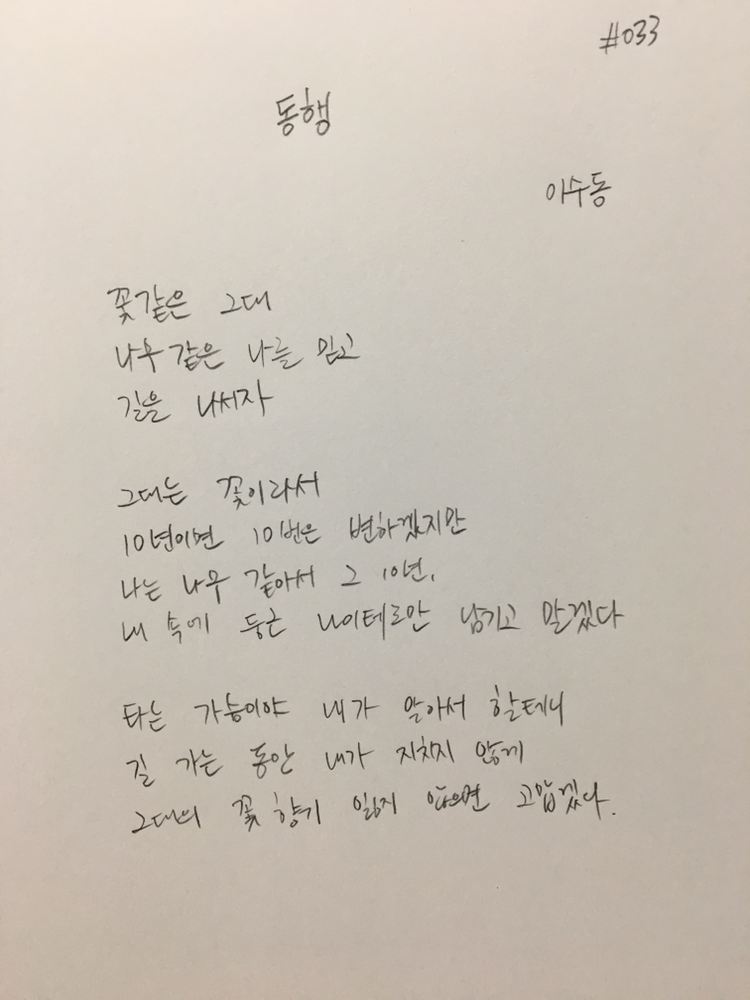 #033
동행
이수동
꽃같은 그대
나무 같은 나를 믿고
길을 나서자
그대는 꽃이라서
10년이면 10번은 변하겠지만
나는 나무 같아서 그 10년,
내 속에 둥근 나이테로만 남기고 말겠다
타는 가슴이야 내가 알아서 할테니
길 가는 동안 내가 지치지 않게
그대의 꽃 향기 잃지 않으면 고맙겠다.